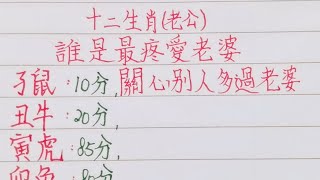 十二生肖(老公)
誰是最疼愛老婆
子鼠:10分,關心別人多過老婆
丑牛:20分,
寅虎:85分,
卯兔:80分